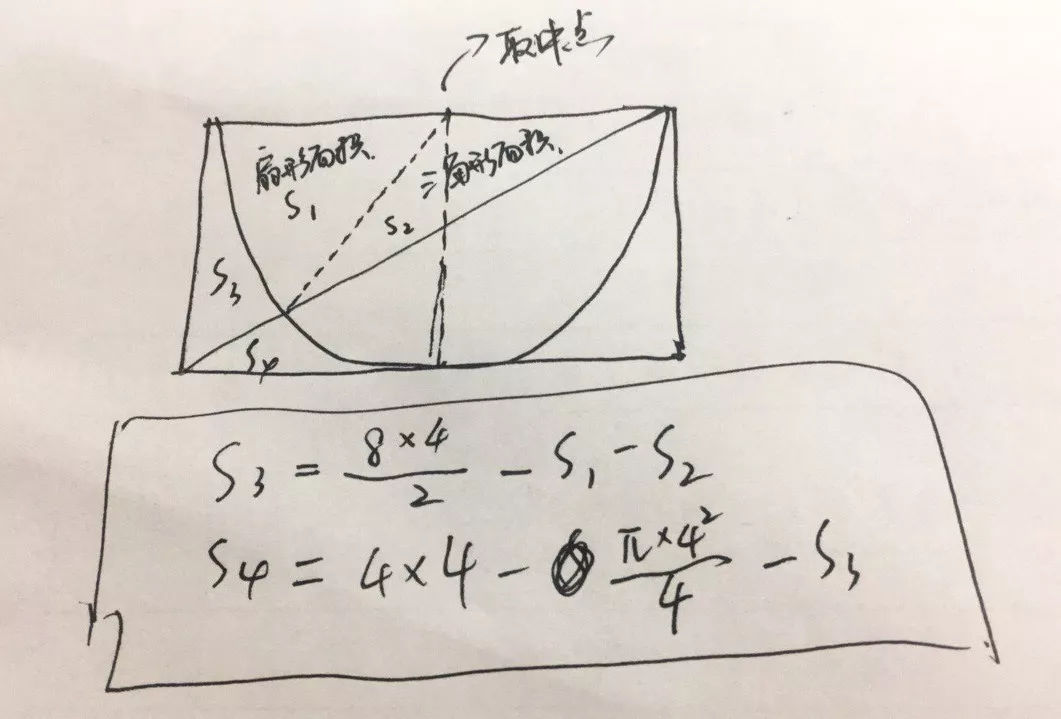 取中点
扇形面积
S₁
三角形面积
S₂
S₃
S₄
S₃ = (8×4)/2 - S₁ - S₂
S₄ = 4×4 - (π×4²)/4 - S₃